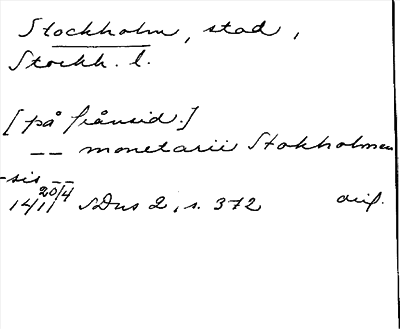 Stockholm, stad,
Stockh. l.
[på frånsid.]
-- monetarii Stokholmen
-sis --
20/4
1411 SDns 2, s. 372 orig.